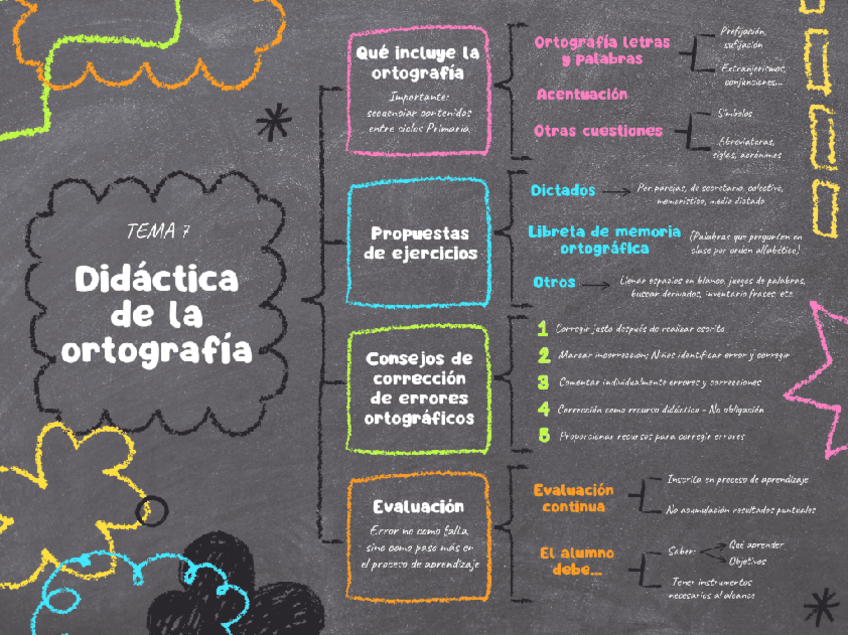 TEMA 7
Didáctica
de la
ortografía
Qué incluye la
ortografía
Importante:
secuenciar contenidos
entre ciclos Primaria
Ortografía letras
y palabras
Prefijación,
sufijación
Extranjerismos,
conjunciones...
Acentuación
Otras cuestiones
Símbolos
Abreviaturas,
siglas, acrónimos
Propuestas
de ejercicios
Dictados
Por parejas, de secretario, colectivo,
memorístico, medio dictado
Libreta de memoria
ortográfica
(Palabras que pregunten en
clase por orden alfabético)
Otros
Llenar espacios en blanco, juegos de palabras,
buscar derivados, inventario frases, etc.
Consejos de
corrección
de errores
ortográficos
1 Corregir justo después de realizar escrito
2 Marcar incorrección; Niños identificar error y corregir
3 Comentar individualmente errores y correcciones
4 Corrección como recurso didáctico - No obligación
5 Proporcionar recursos para corregir errores
Evaluación
Error no como falta,
sino como paso más en
el proceso de aprendizaje
Evaluación
continua
Inscrita en proceso de aprendizaje
No acumulación resultados puntuales
El alumno
debe...
Saber:
Qué aprender
Objetivos
Tener instrumentos
necesarios al alcance